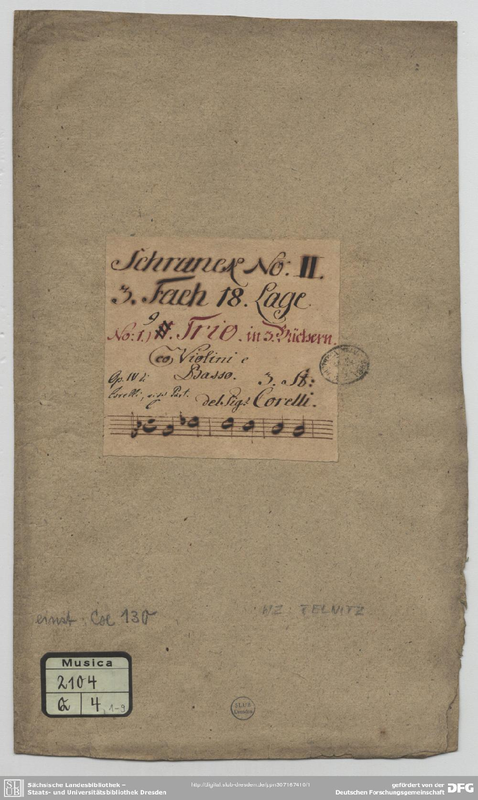 Schranck No: II.
3. Fach 18. Lage
No: 1.) 9 #. Trio. in 3. Büchern.
co Violini e
Basso. 3. St:
Op. IV
Corelli, Part. del Sig: Corelli.
einst: Coc 130
WZ: TELNITZ
Musica
2104
Q 4, 1-9
SLUB
Sächsische Landesbibliothek –
Staats- und Universitätsbibliothek Dresden
http://digital.slub-dresden.de/ppn307187410/1
gefördert von der
Deutschen Forschungsgemeinschaft
DFG